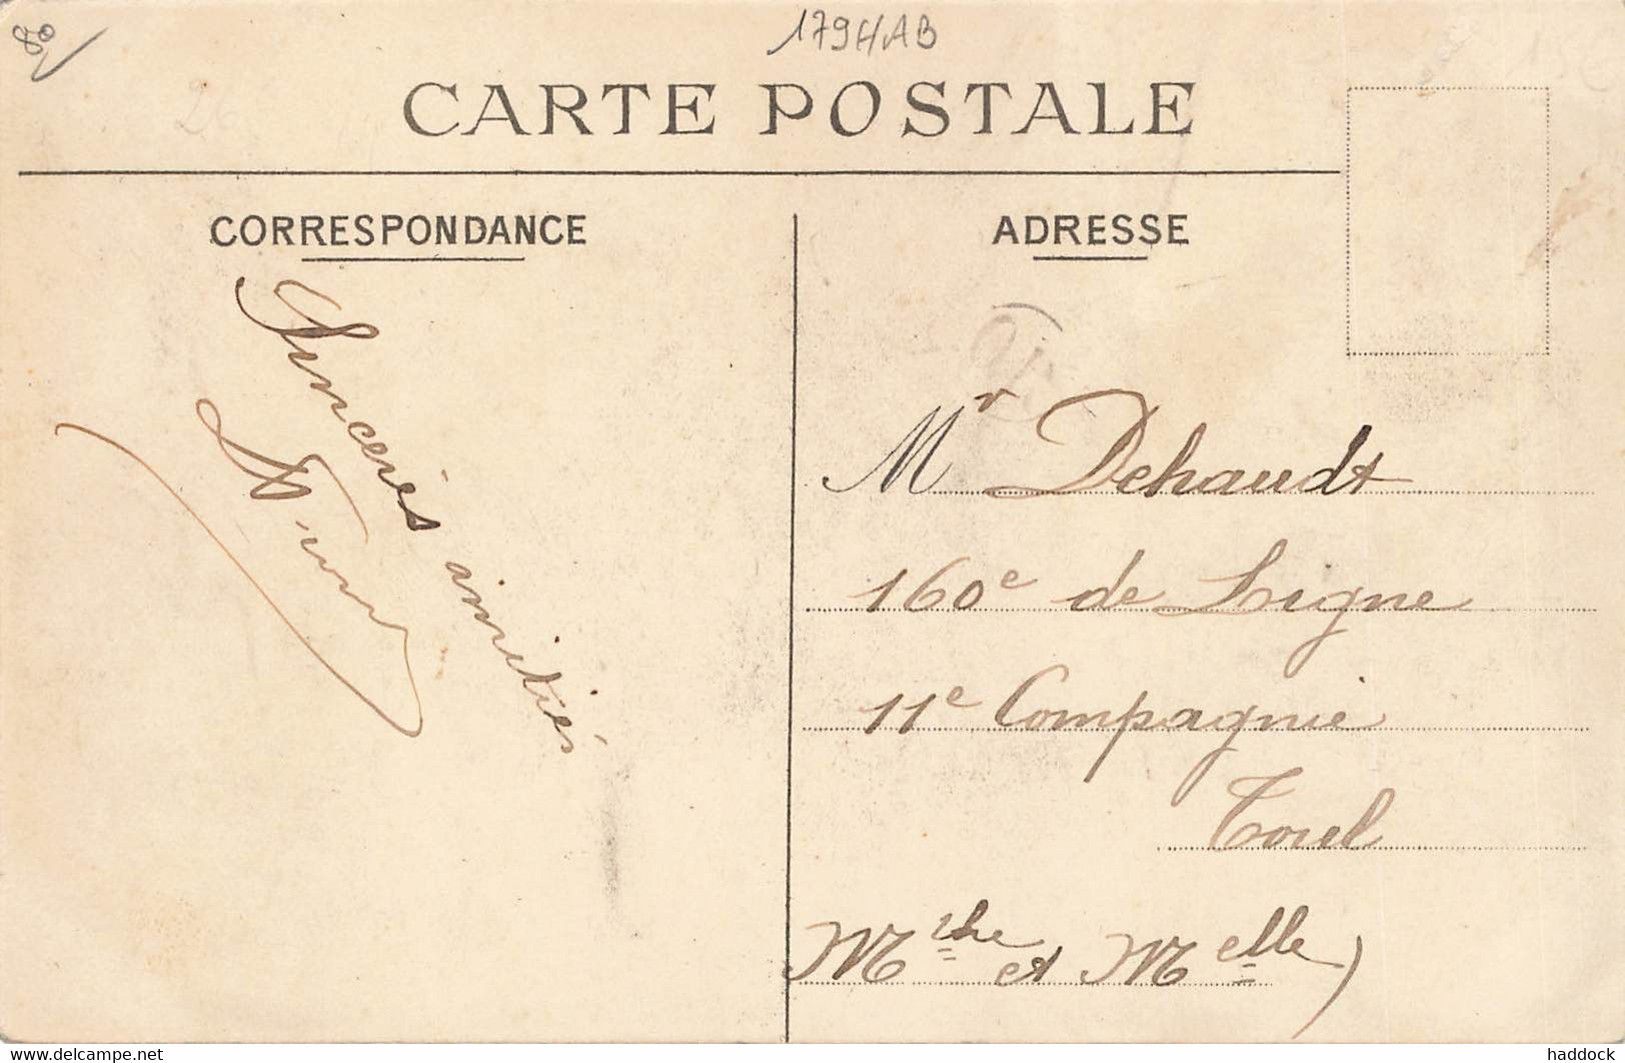 179HAB
CARTE POSTALE
CORRESPONDANCE
ADRESSE
Sincères amitiés
Mr Dehaudt
160e de Ligne
11e Compagnie
Toul
Mthe et Melle)
www.delcampe.net
haddock